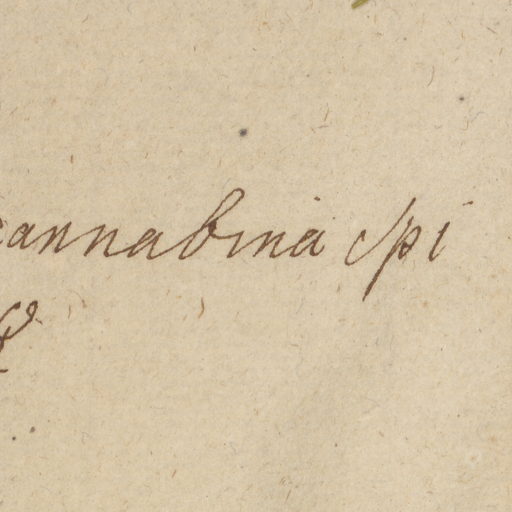 cannabina spi